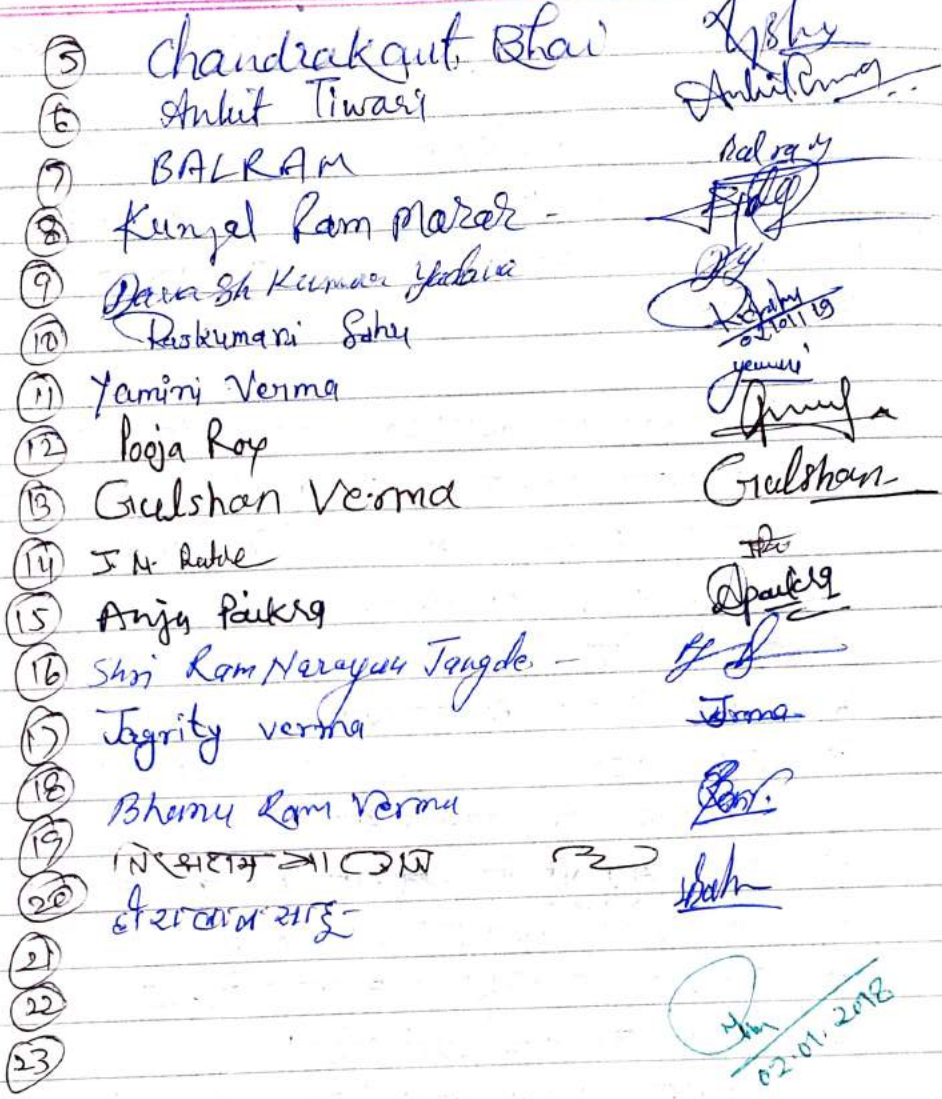 5 Chandrakant Bhai
6 Ankit Tiwari Ankit
7 BALRAM Balram
8 Kunjal Ram Marar -
9 Devash Kumar Yadava
10 Rajkumari Sahu
11 Yamini Verma Yamini
12 Pooja Roy
13 Gulshan Verma Gulshan
14 J. N. Ratre
15 Anju Paikra Apaikra
16 Shri Ram Narayan Jangde -
17 Jagrity verma Jrma
18 Bhanu Ram Verma
19
20 हीरालाल साहू - Sahu
21
22
23
02.01.2018